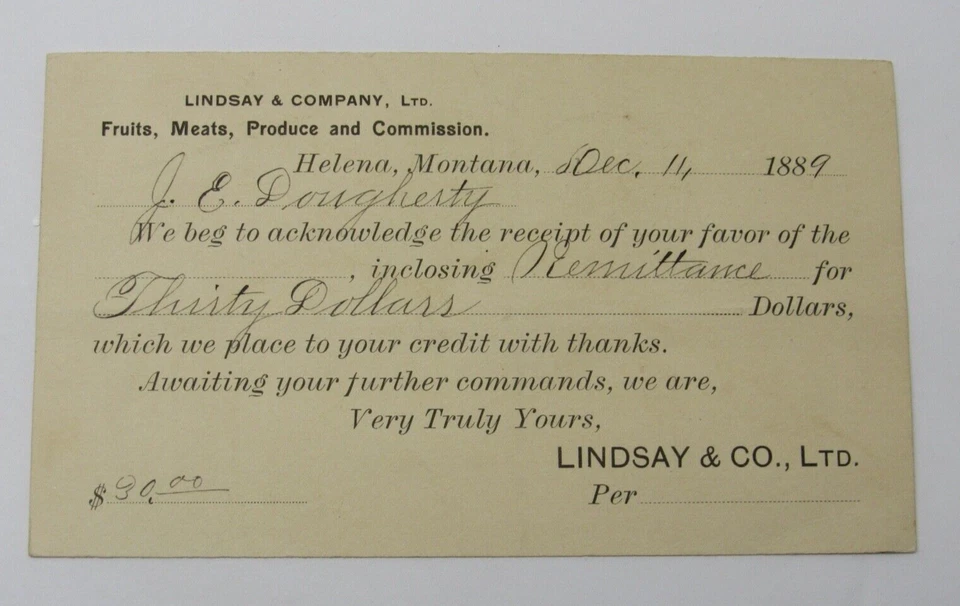 LINDSAY & COMPANY, LTD.
Fruits, Meats, Produce and Commission.
Helena, Montana, Dec. 11, 1889
J. E. Dougherty
We beg to acknowledge the receipt of your favor of the
, inclosing Remittance for
Thirty Dollars Dollars,
which we place to your credit with thanks.
Awaiting your further commands, we are,
Very Truly Yours,
LINDSAY & CO., LTD.
$30.00 Per